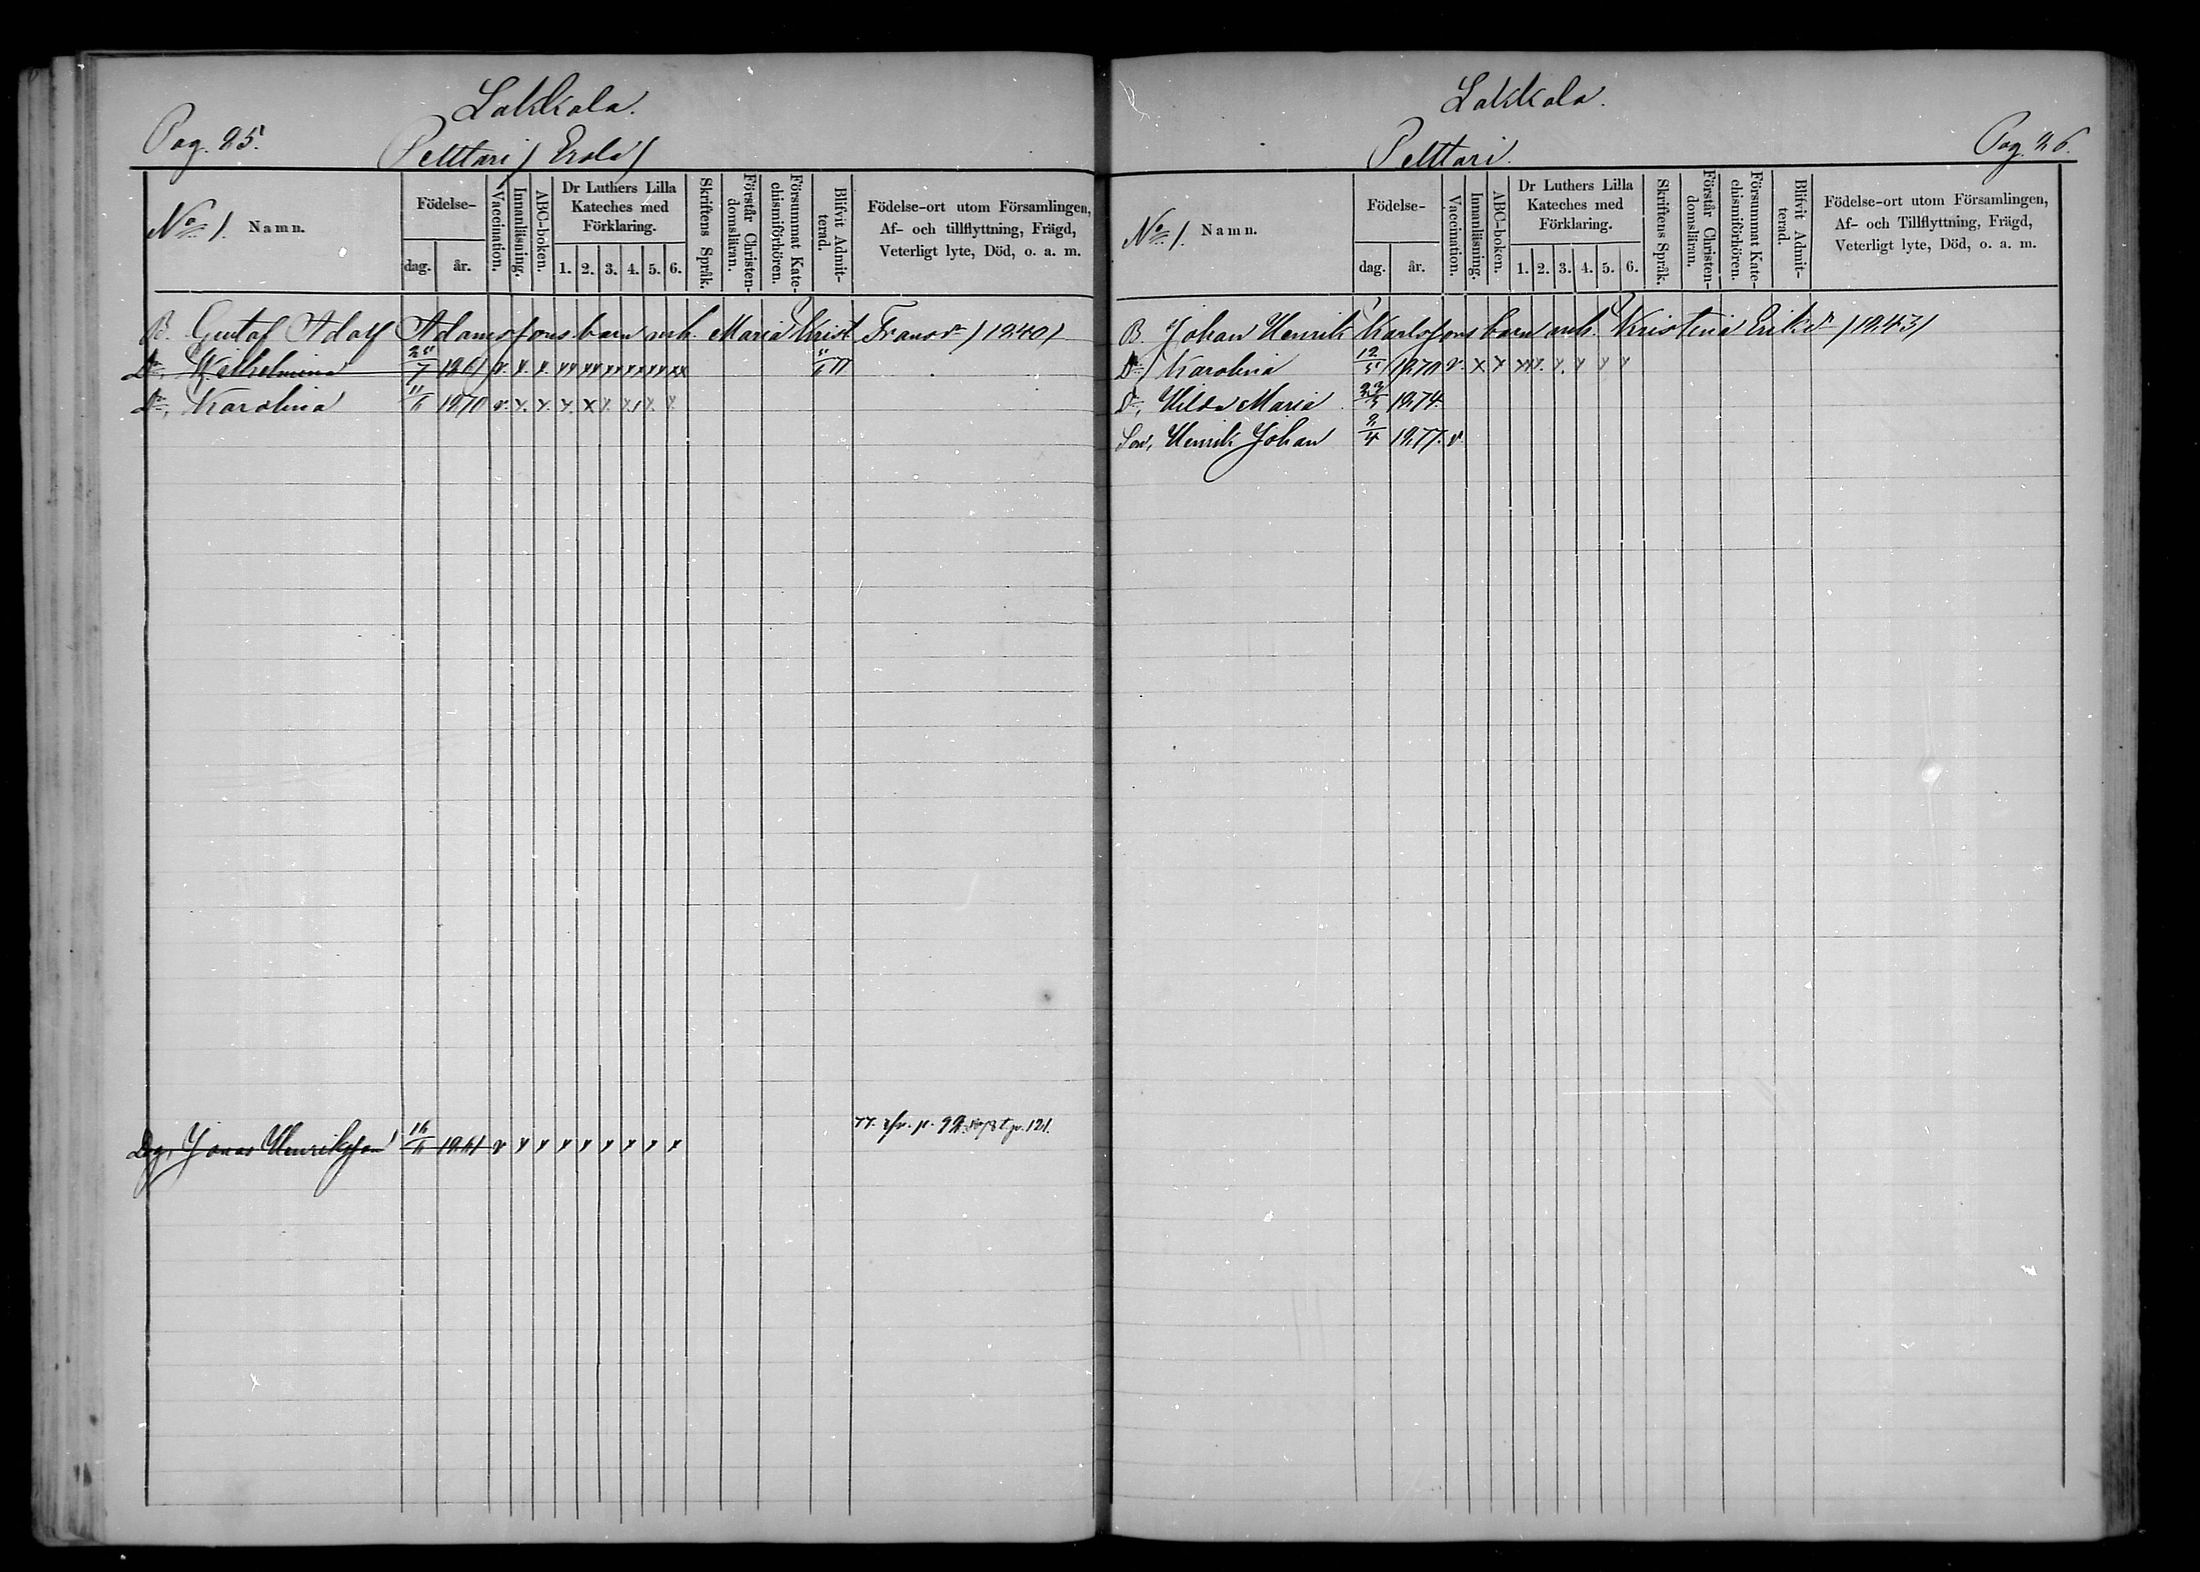 Lakkola.
Pag. 25.
Pelttari / Erola /
No 1. Namn.
Födelse-
dag. år.
Vaccination.
Innanläsning.
ABC-boken.
Dr Luthers Lilla
Kateches med
Förklaring.
1. 2. 3. 4. 5. 6.
Skriftens Språk.
Förstår Christen-
domsläran.
Försummat Kate-
chismiförhören.
Blifvit Admit-
terad.
Födelse-ort utom Församlingen,
Af- och tillflyttning, Frägd,
Veterligt lyte, Död, o. a. m.
B. Gustaf Adolf Adamssons barn m.h. Maria Krist. Fransdr / 1840 /
Dr, Wilhelmina 25/7 1861 v. x. x. xx xx xx xx xx xx
Dr, Karolina 11/11 1870 v. x. x. x. x x x x x
77. 92. 121.
Dg, Jonas Henriksson 16/11 1861 v x x x x x x x x
Lakkola.
Pag. 26.
Pelttari.
No 1. Namn.
Födelse-
dag. år.
Vaccination.
Innanläsning.
ABC-boken.
Dr Luthers Lilla
Kateches med
Förklaring.
1. 2. 3. 4. 5. 6.
Skriftens Språk.
Förstår Christen-
domsläran.
Försummat Kate-
chismiförhören.
Blifvit Admit-
terad.
Födelse-ort utom Församlingen,
Af- och Tillflyttning, Frägd,
Veterligt lyte, Död, o. a. m.
B. Johan Henrik Karlssons barn m.h. Kristina Eriksdr / 1843 /
Dr, Karolina 12/5 1870 v. x x xx. x x x x x
Dr, Hilda Maria 23/3 1874.
Son, Henrik Johan 2/4 1877. v.